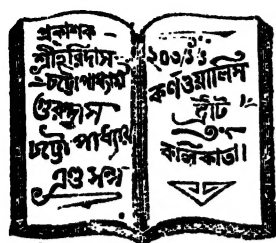 প্রকাশক—
শ্রীহরিদাস-
চট্টোপাধ্যায়
গুরুদাস
চট্টোপাধ্যায়
এণ্ড সন্স
২০৩/১/১
কর্ণওয়ালিস
ষ্ট্রীট
কলিকাতা।